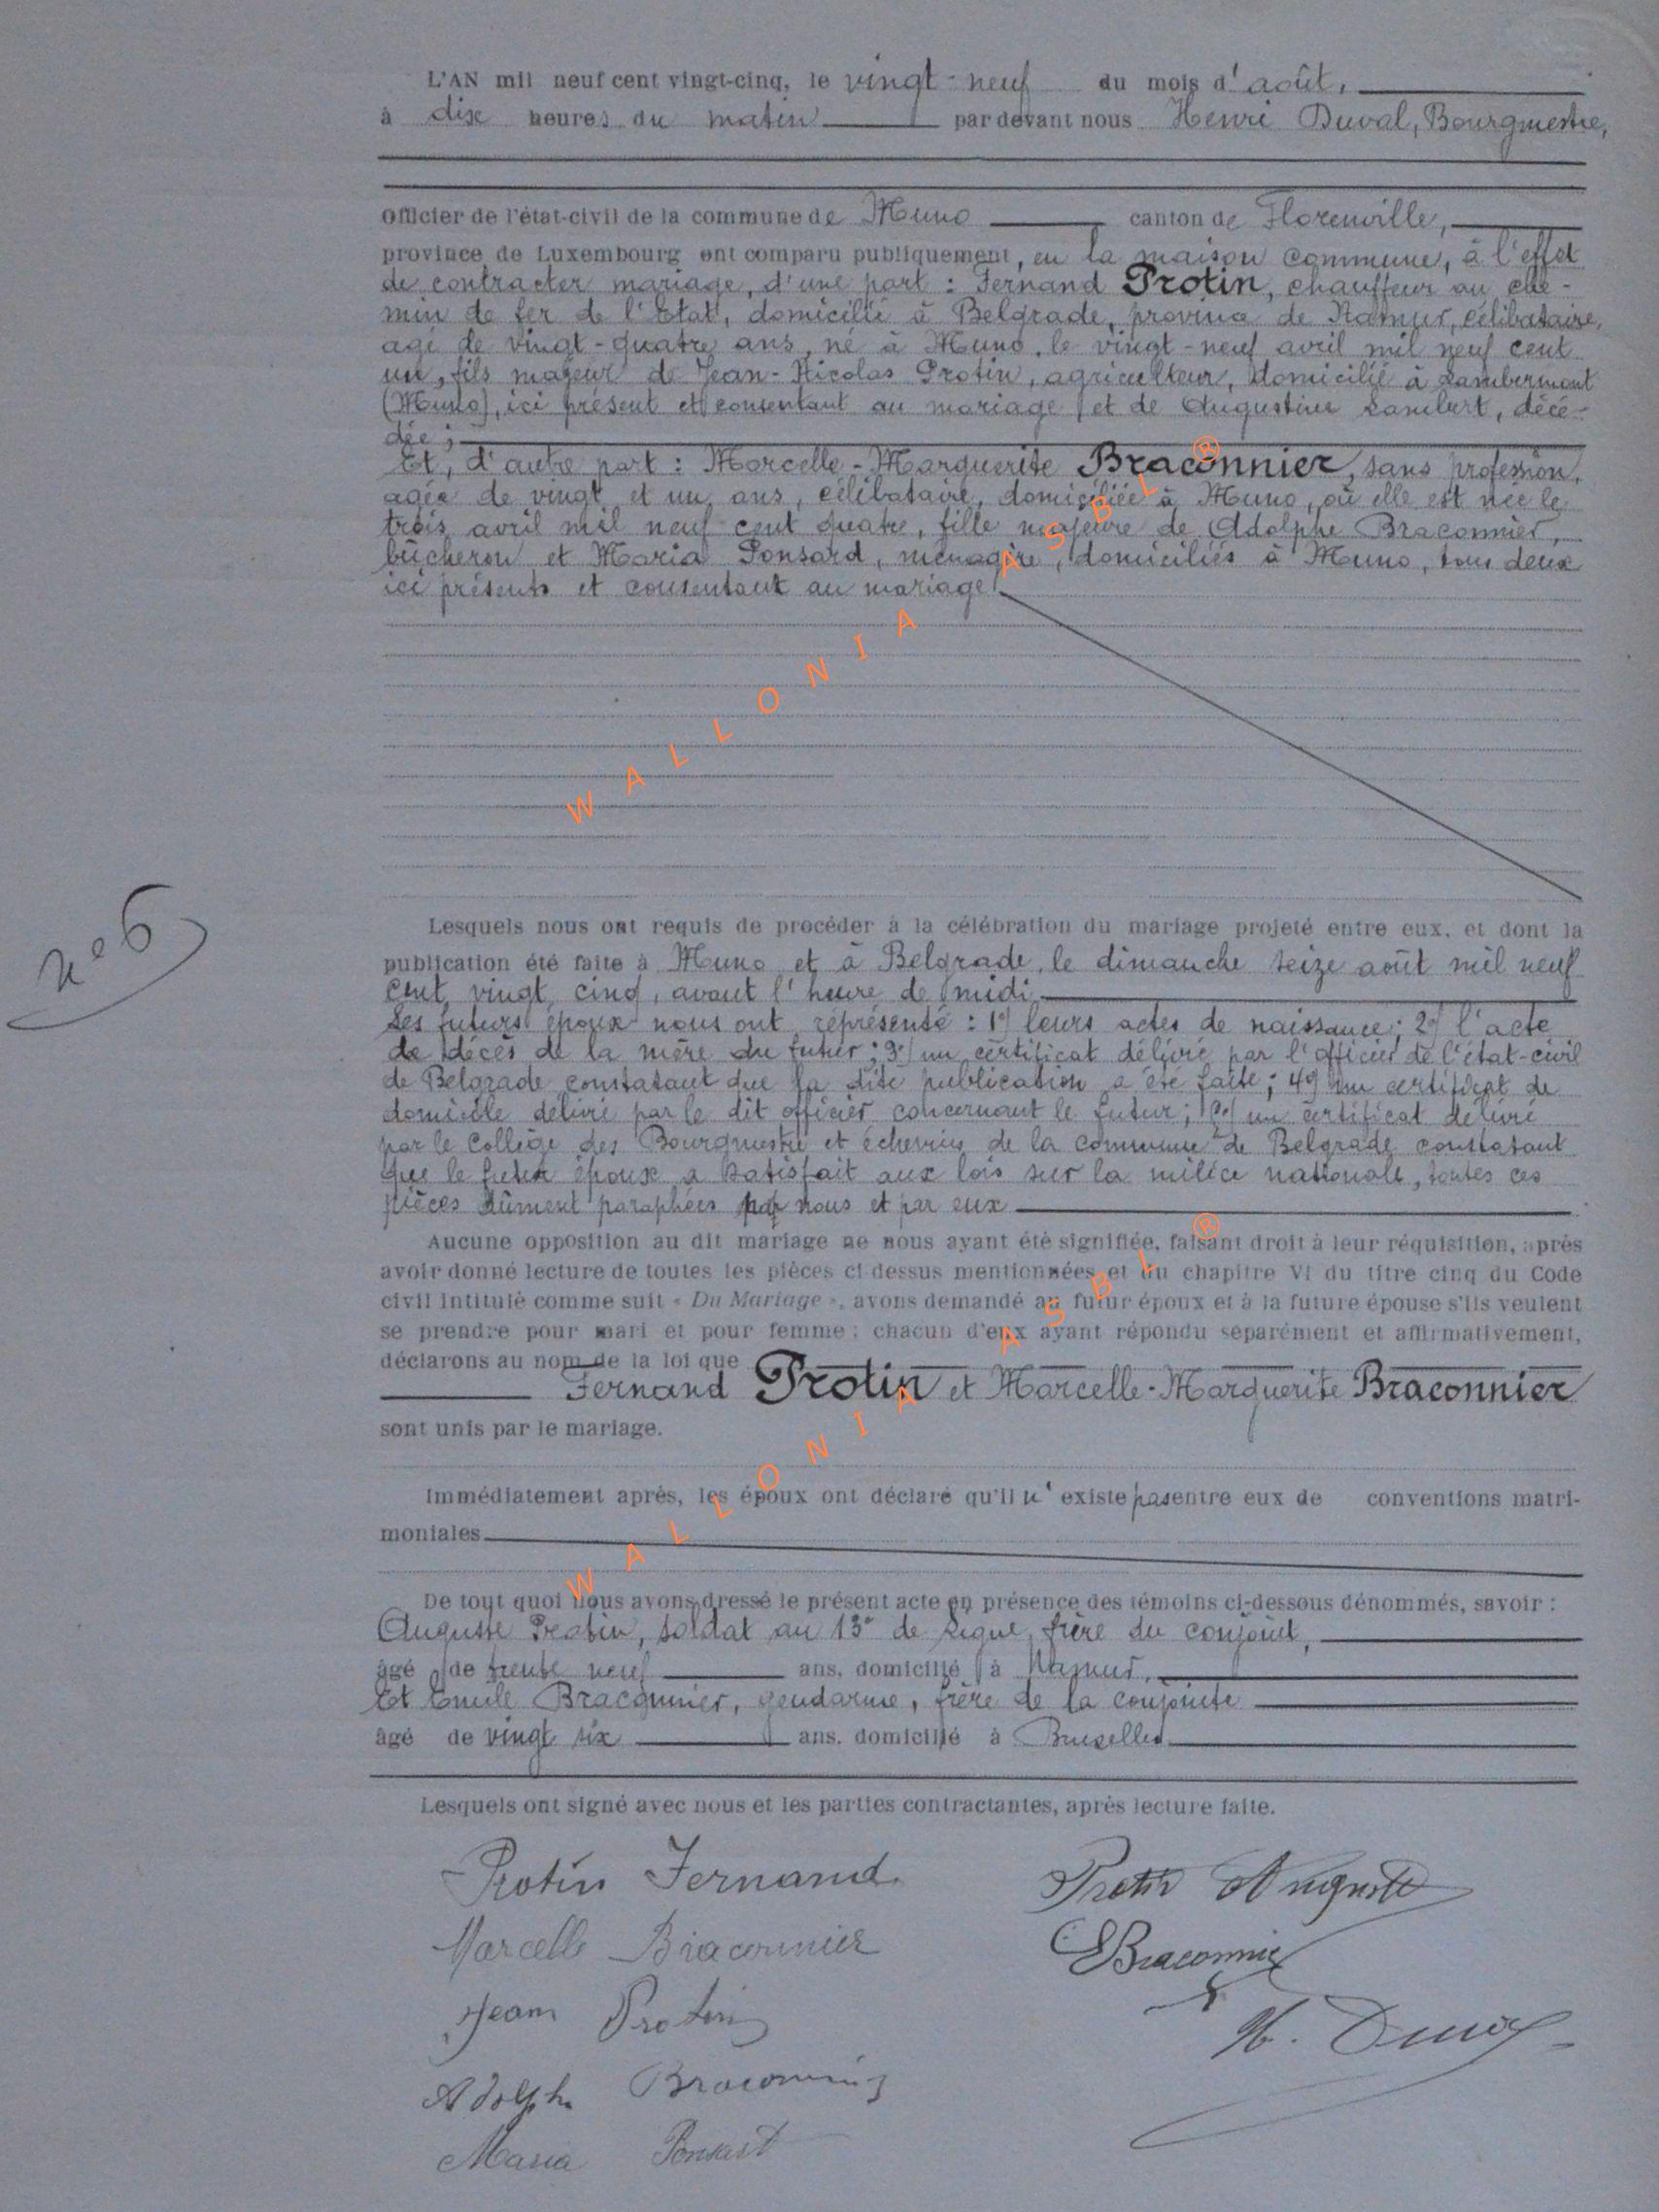 L'AN mil neuf cent vingt-cinq, le vingt-neuf du mois d'août,
à dix heures du matin par devant nous Henri Duval, Bourgmestre,
Officier de l'état-civil de la commune de Muno canton de Florenville,
province de Luxembourg ont comparu publiquement, en la maison commune, à l'effet
de contracter mariage, d'une part : Fernand Protin, chauffeur au che-
min de fer de l'Etat, domicilié à Belgrade, province de Namur, célibataire,
agé de vingt-quatre ans, né à Muno, le vingt-neuf avril mil neuf cent
un, fils majeur de Jean-Nicolas Protin, agriculteur, domicilié à Lambermont
(Muno), ici présent et consentant au mariage et de Augustine Lambert, décé-
dée ;
Et, d'autre part : Marcelle-Marguerite Braconnier, sans profession,
agée de vingt et un ans, célibataire, domiciliée à Muno, où elle est née le
trois avril mil neuf cent quatre, fille majeure de Adolphe Braconnier,
bûcheron et Maria Ponsard, ménagère, domiciliés à Muno, tous deux
ici présents et consentant au mariage.
Lesquels nous ont requis de procéder à la célébration du mariage projeté entre eux, et dont la
publication été faite à Muno et à Belgrade, le dimanche seize août mil neuf
cent vingt cinq, avant l'heure de midi
Les futurs époux nous ont réprésenté : 1°) leurs actes de naissance ; 2°) l'acte
de décès de la mère du futur ; 3°) un certificat délivré par l'officier de l'état-civil
de Belgrade constatant que la dite publication a été faite ; 4°) un certificat de
domicile délivré par le dit officier concernant le futur ; un certificat délivré
par le Collège des Bourgmestre et échevins de la commune de Belgrade constatant
que le futur époux a satisfait aux lois sur la milice nationale, toutes ces
pièces dûment paraphées par nous et par eux
Aucune opposition au dit mariage ne nous ayant été signifiée, faisant droit à leur réquisition, après
avoir donné lecture de toutes les pièces ci-dessus mentionnées et du chapitre VI du titre cinq du Code
civil intitulé comme suit « Du Mariage », avons demandé au futur époux et à la future épouse s'ils veulent
se prendre pour mari et pour femme ; chacun d'eux ayant répondu séparément et affirmativement,
déclarons au nom de la loi que
Fernand Protin et Marcelle-Marguerite Braconnier
sont unis par le mariage.
n° 6
Immédiatement après, les époux ont déclaré qu'il n'existe pas entre eux de conventions matri-
moniales
De tout quoi nous avons dressé le présent acte en présence des témoins ci-dessous dénommés, savoir :
Auguste Protin, soldat au 13e de Ligne, frère du conjoint,
âgé de trente neuf ans, domicilié à Namur,
Et Emile Braconnier, gendarme, frère de la conjointe
âgé de vingt six ans, domicilié à Bruxelles
Lesquels ont signé avec nous et les parties contractantes, après lecture faite.
Protin Fernand
Protin Auguste
Marcelle Braconnier
EBraconnier
Jean Protin
H. Duval
Adolphe Braconnier
Maria Ponsart
WALLONIA ASBL ®
WALLONIA ASBL ®